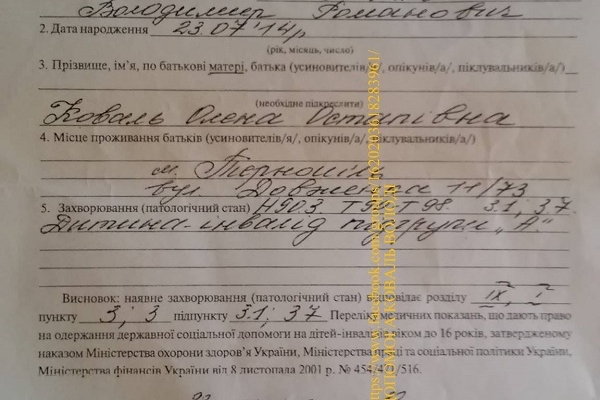 Володимир Романович
2. Дата народження 23.07.14р
(рік, місяць, число)
3. Прізвище, ім'я, по батькові матері, батька (усиновителів/я/, опікунів/а/, піклувальників/а/)
(необхідне підкреслити)
Коваль Олена Остапівна
4. Місце проживання батьків (усиновителів/я/, опікунів/а/, піклувальників/а/)
м. Тернопіль
вул Довженка 11/73
5. Захворювання (патологічний стан) Н903 Т98 3.1; 3.7.
Дитина-інвалід підгрупи „А"
Висновок: наявне захворювання (патологічний стан) відповідає розділу IX, I
пункту 3; 3 підпункту 3.1; 3.7 Перелік медичних показань, що дають право
на одержання державної соціальної допомоги на дітей-інвалідів віком до 16 років, затвердженому
наказом Міністерства охорони здоров'я України, Міністерства праці та соціальної політики України,
Міністерства фінансів України від 8 листопада 2001 р. № 454/471/516.
facebook.com/groups
ДОПОМОГА КОВАЛЬ ВОЛОДІ